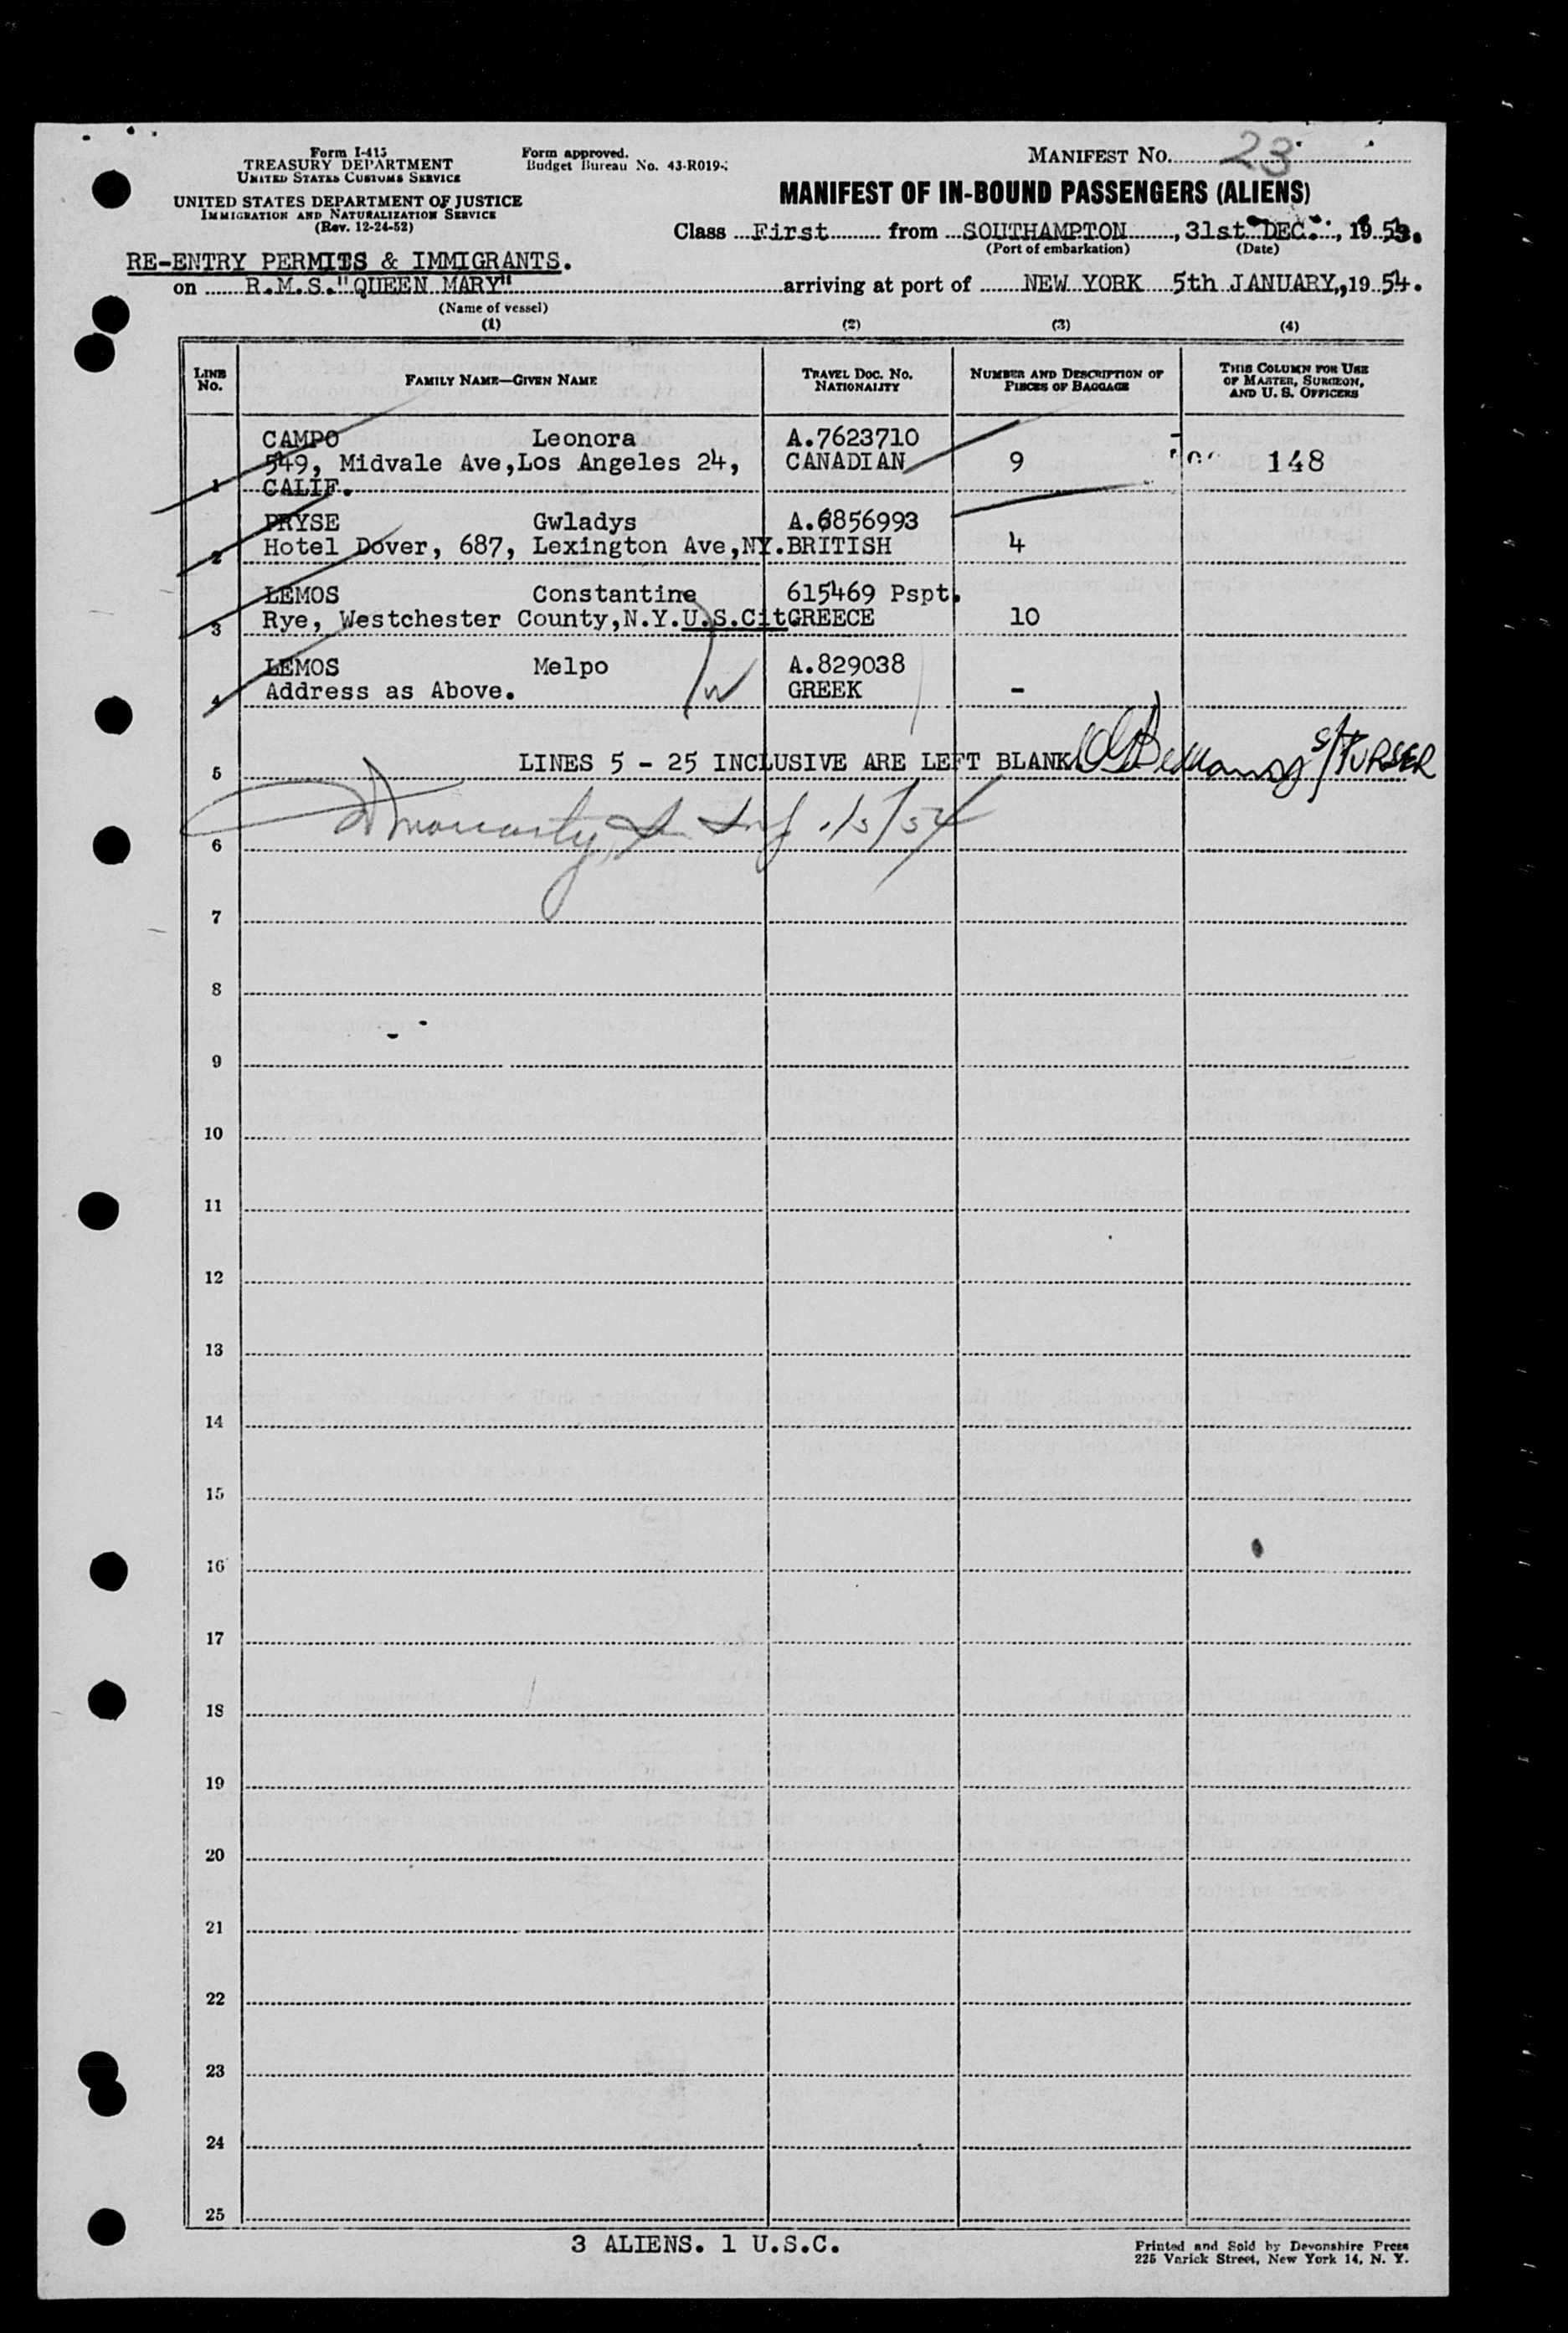 Form I-415
TREASURY DEPARTMENT
UNITED STATES CUSTOMS SERVICE
UNITED STATES DEPARTMENT OF JUSTICE
IMMIGRATION AND NATURALIZATION SERVICE
(Rev. 12-24-52)
Form approved.
Budget Bureau No. 43-R019-
MANIFEST No. 23
MANIFEST OF IN-BOUND PASSENGERS (ALIENS)
Class First from SOUTHAMPTON, 31st DEC., 1953.
(Port of embarkation) (Date)
RE-ENTRY PERMITS & IMMIGRANTS.
on R.M.S. "QUEEN MARY" arriving at port of NEW YORK 5th JANUARY, 1954.
(Name of vessel)
(1) (2) (3) (4)
LINE No. FAMILY NAME—GIVEN NAME TRAVEL DOC. NO. NATIONALITY NUMBER AND DESCRIPTION OF PIECES OF BAGGAGE THIS COLUMN FOR USE OF MASTER, SURGEON, AND U. S. OFFICERS
CAMPO Leonora A.7623710
549, Midvale Ave,Los Angeles 24, CANADIAN 9 148
1 CALIF.
PRYSE Gwladys A.6856993
2 Hotel Dover, 687, Lexington Ave,NY. BRITISH 4
LEMOS Constantine 615469 Pspt.
3 Rye, Westchester County,N.Y.U.S.Cit GREECE 10
LEMOS Melpo A.829038
4 Address as Above. GREEK -
5 LINES 5 - 25 INCLUSIVE ARE LEFT BLANK S/PURSER
1/5/54
6
7
8
9
10
11
12
13
14
15
16
17
18
19
20
21
22
23
24
25
3 ALIENS. 1 U.S.C.
Printed and Sold by Devonshire Press
225 Varick Street, New York 14, N. Y.